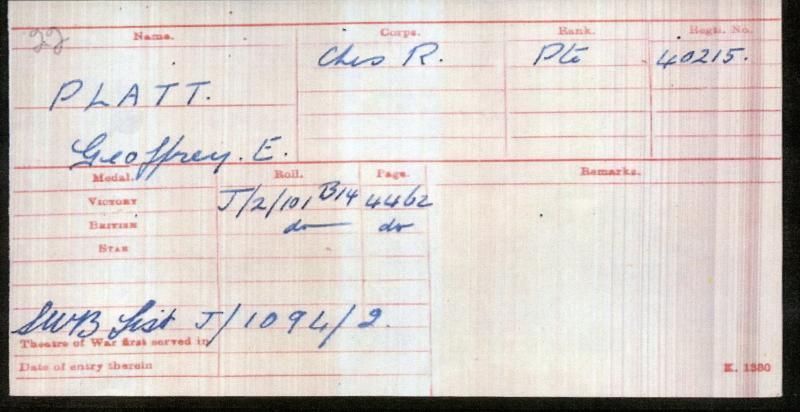 Name. Corps. Rank. Regtl. No.
Ches R. Pte 40215.
PLATT.
Geoffrey. E.
Medal. Roll. Page. Remarks.
VICTORY J/2/101 B14 4462
BRITISH do do
STAR
SWB List J/1094/2.
Theatre of War first served in
Date of entry therein
K. 1380